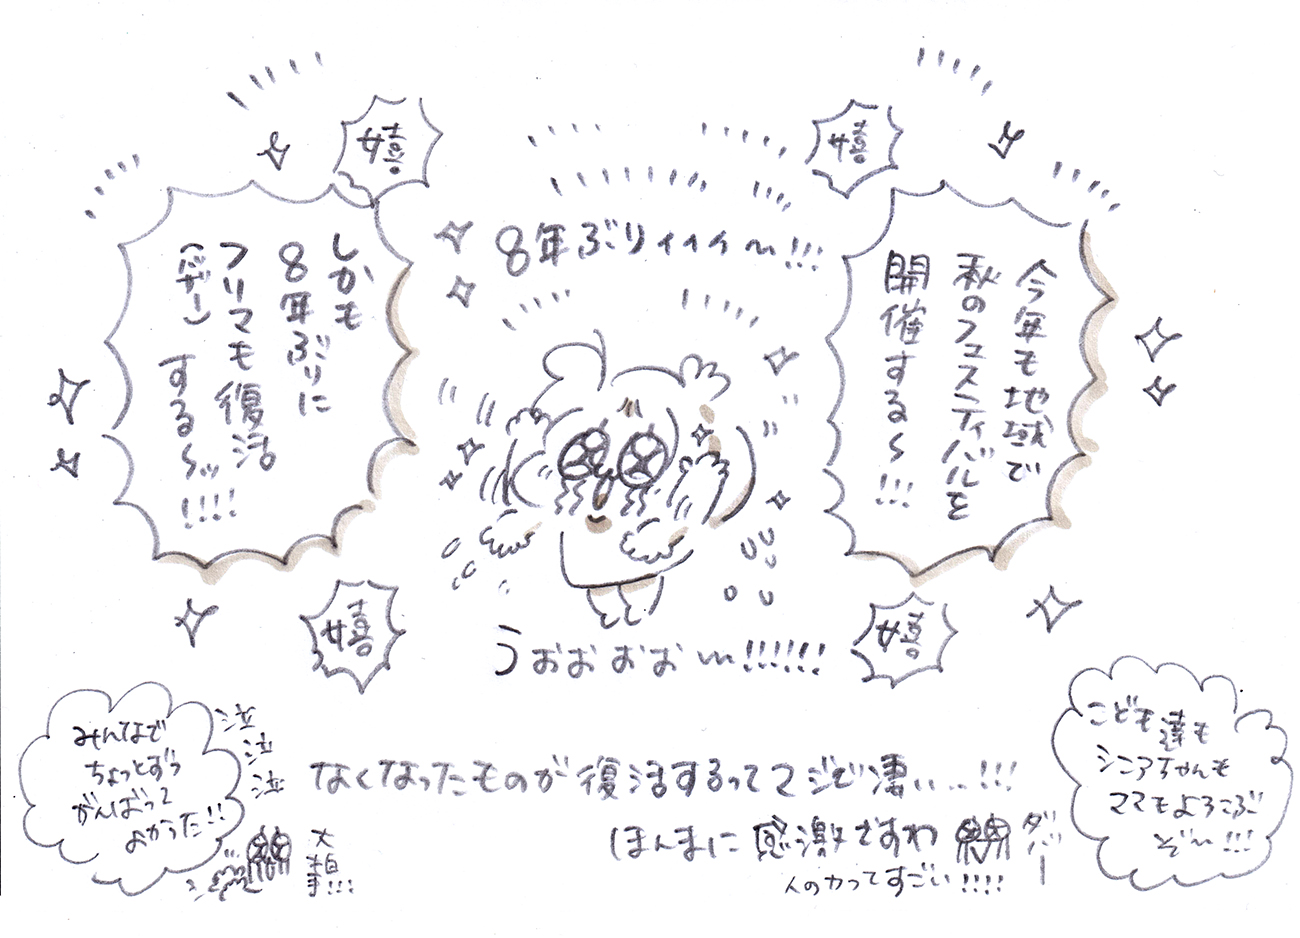 嬉。
嬉。
8年ぶりィィィ〜!!!
今年も地域で
秋のフェスティバルを
開催する〜!!!
しかも
8年ぶりに
フリマも復活
(バザー)する〜!!!!
嬉。
嬉。
うおおおお〜!!!!!!
みんなで
ちょっとずつ
がんばって
よかった!!
泣
泣
泣
大拍手!!!
なくなったものが復活するってマジで凄い…!!!
ほんまに感激ですわ
ダバー
人の力ってすごい!!!!
こども達も
シニアちゃんも
ママもよろこぶ
ぞ〜!!!